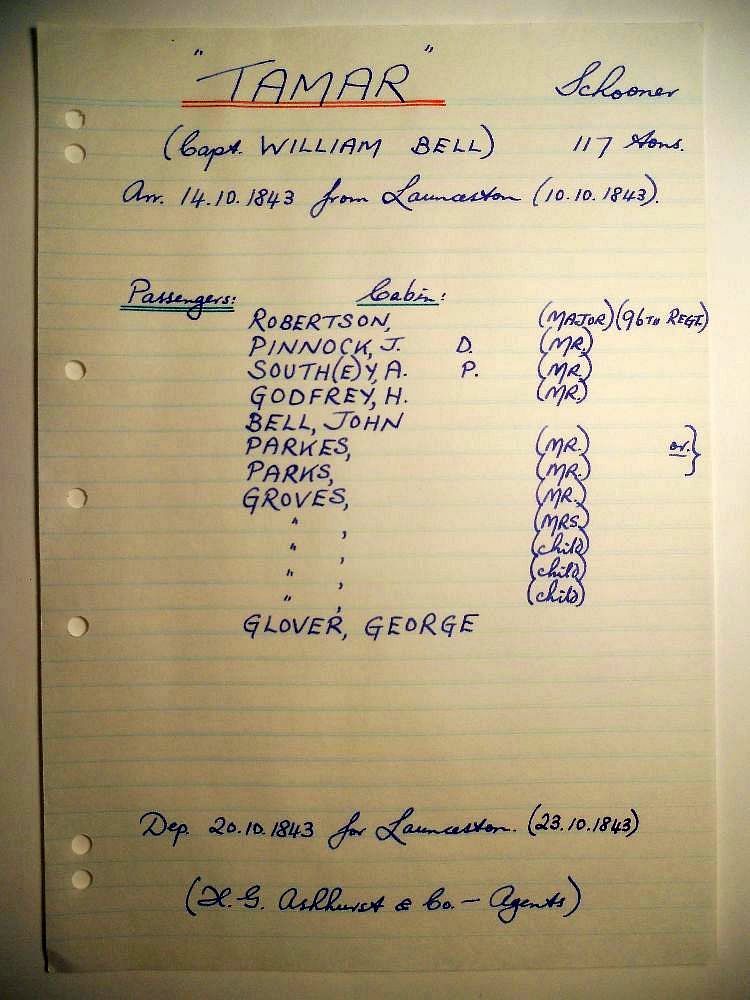 "TAMAR" Schooner
(Capt. WILLIAM BELL) 117 tons.
Arr. 14.10.1843 from Launceston (10.10.1843).
Passengers: Cabin:
ROBERTSON, (MAJOR) (96TH REGT.)
PINNOCK, J. D. (MR.)
SOUTH(E)Y, A. P. (MR.)
GODFREY, H. (MR.)
BELL, JOHN
PARKES, (MR.) or }
PARKS, (MR.)
GROVES, (MR.)
" , (MRS.)
" , (child)
" , (child)
" , (child)
GLOVER, GEORGE
Dep. 20.10.1843 for Launceston. (23.10.1843)
(H. G. Ashhurst & Co. - Agents)